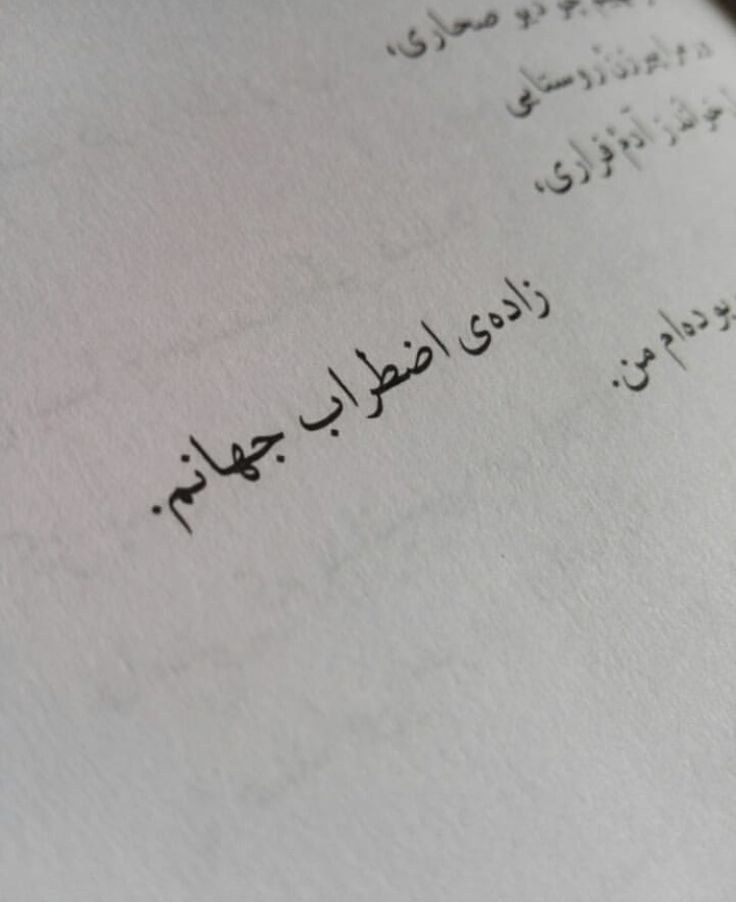 دیو صحاری،
زن روستایی
آدم فراری،
بوده‌ام من.
زاده‌ی اضطراب جهانم.